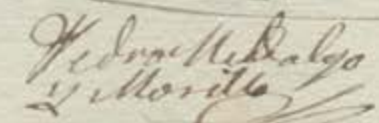 Pedro Hidalgo
y Morillo